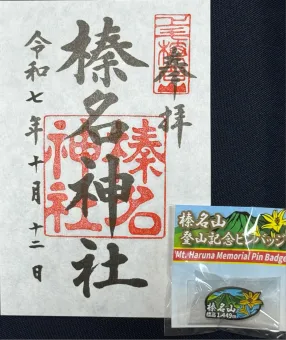 奉拝
榛名神社
榛名神社
令和七年十月十二日
榛名山
登山記念ピンバッジ
Mt.Haruna Memorial Pin Badge
榛名山
標高1,449m